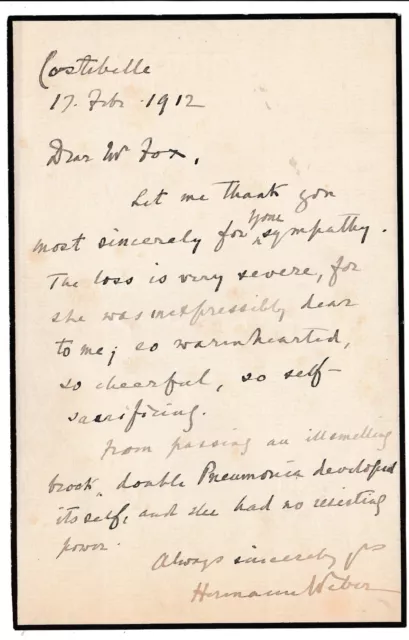 Costebelle
17. Feb. 1912
Dear Mr Fox,
Let me thank you
most sincerely for your sympathy.
The loss is very severe, for
she was inexpressibly dear
to me; so warmhearted,
so cheerful, so self-
sacrificing.
From passing an illsmelling
brook, double Pneumonia developed
itself, and she had no resisting
power.
Always sincerely yrs
Hermann Weber